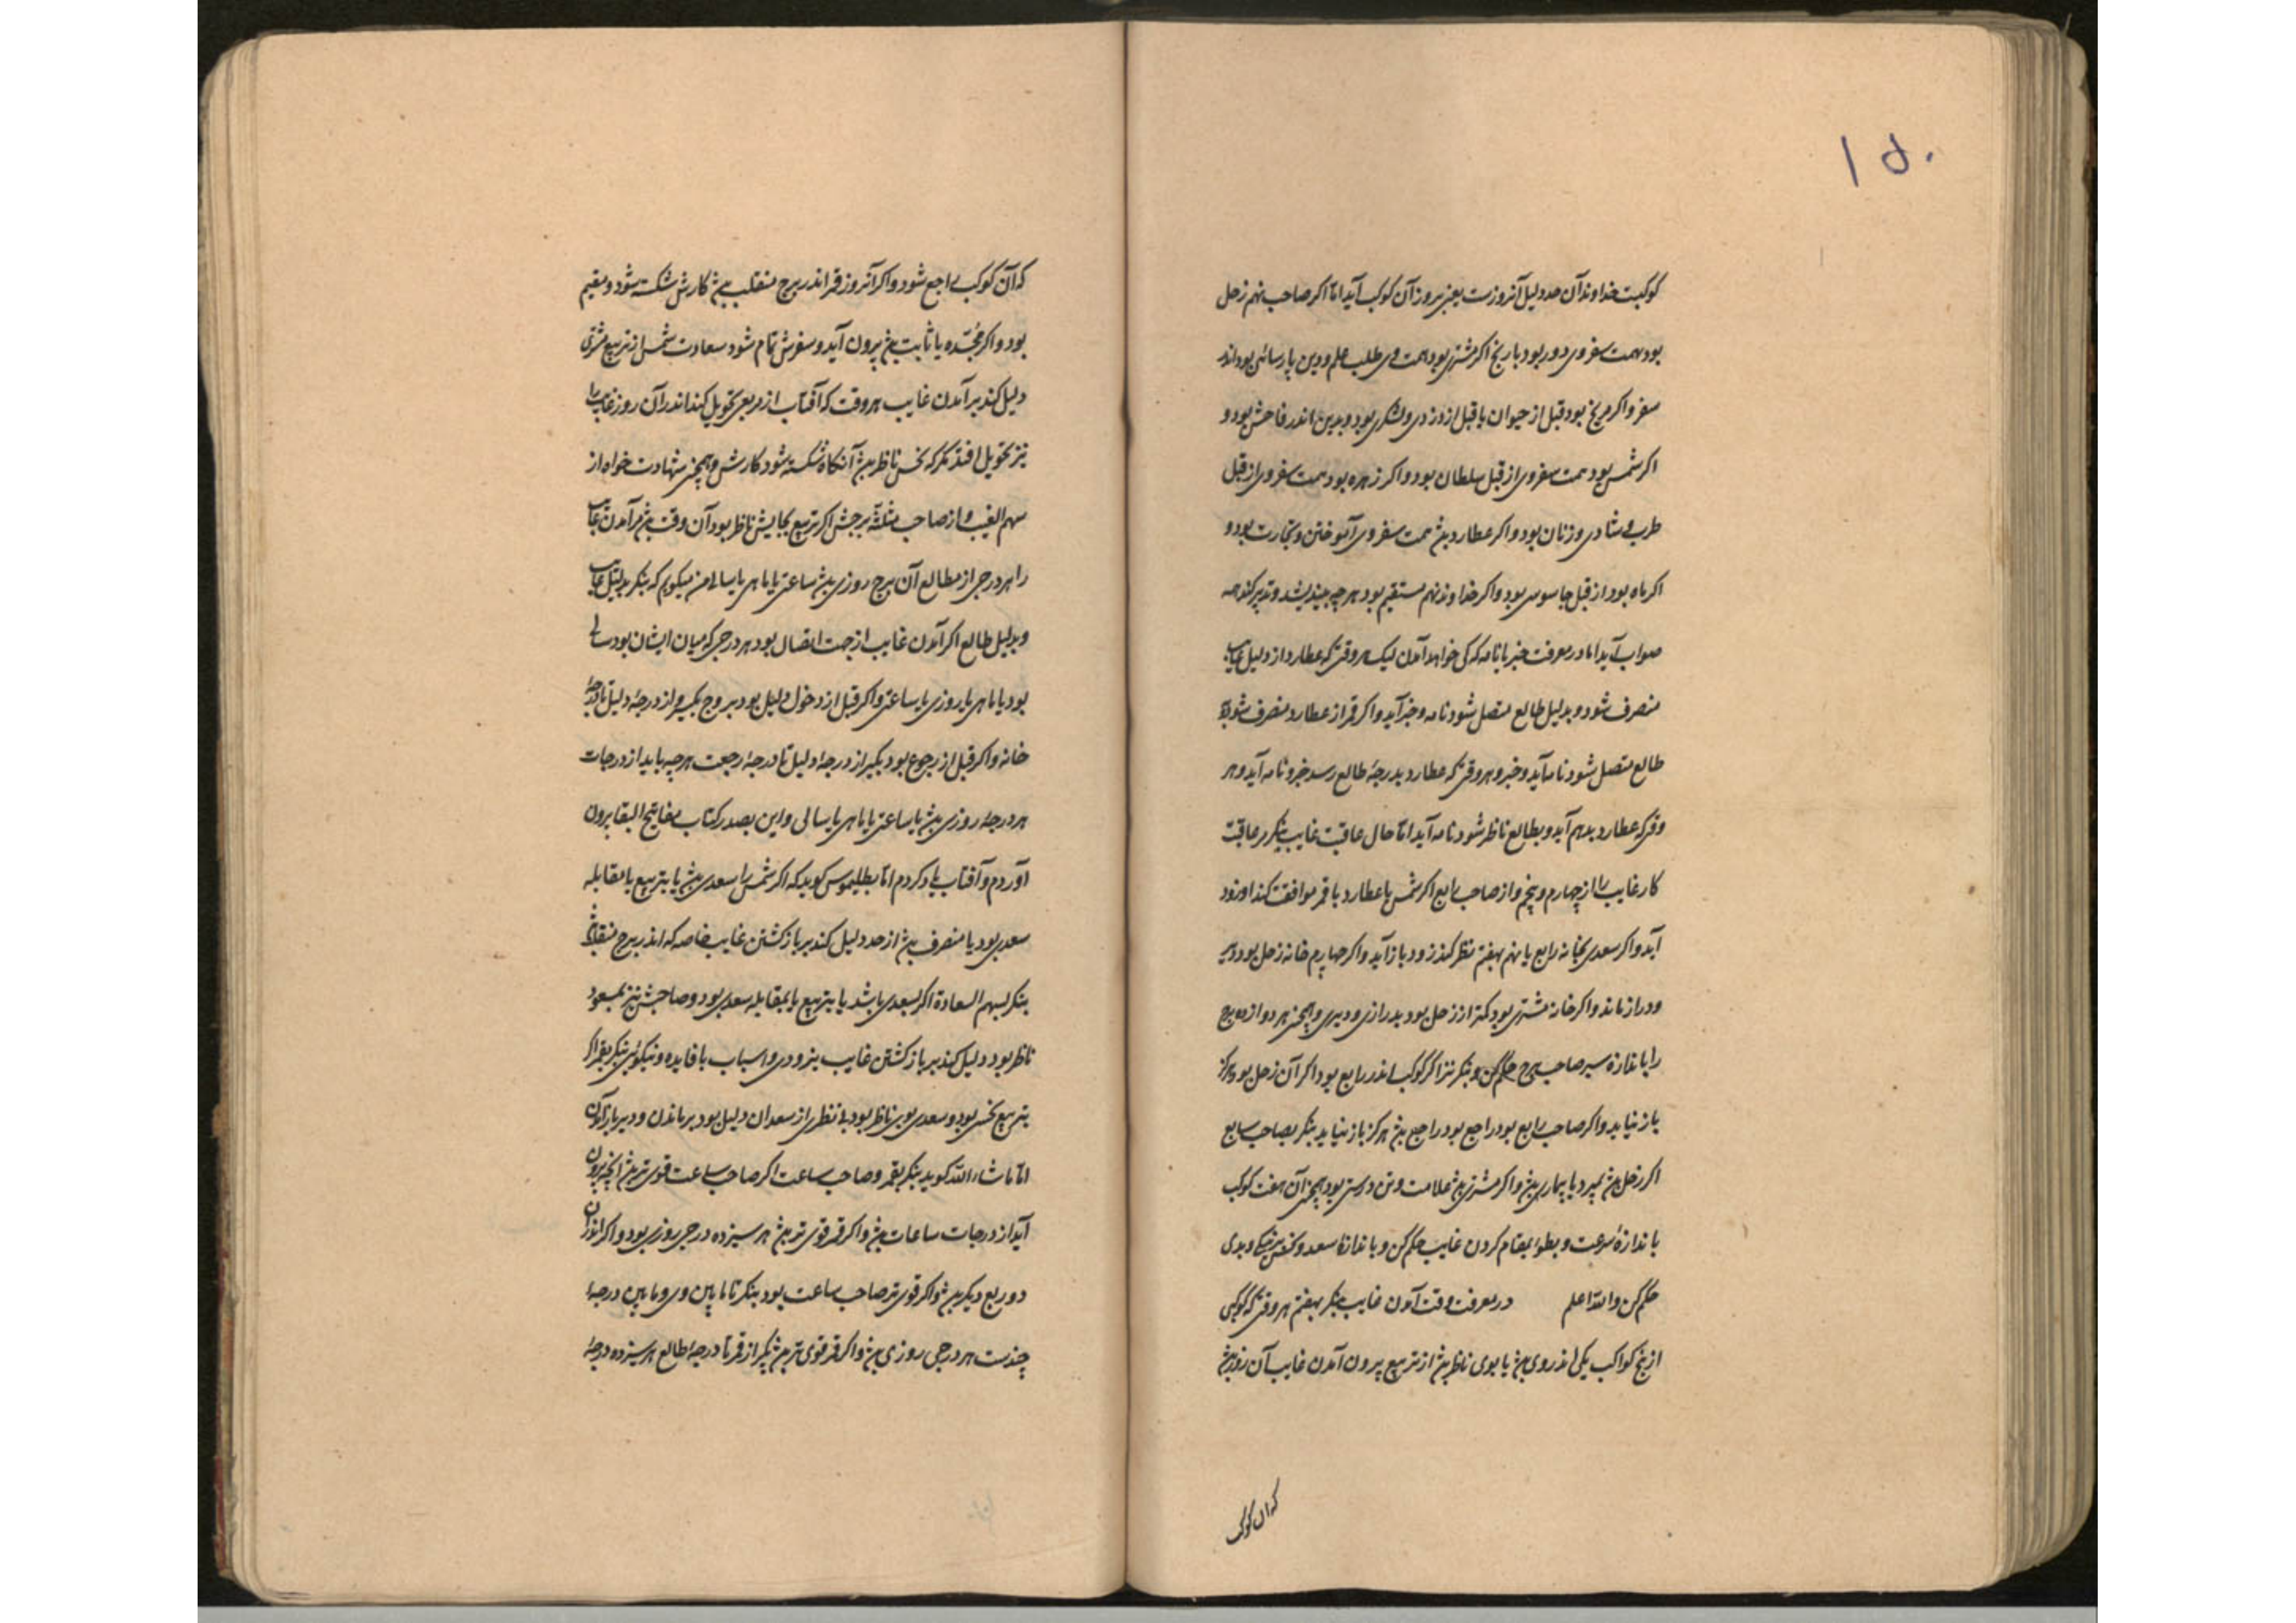 ۱۵۰
کوکبست خداوند آن حد دلیل آنروزست یعنی بروز آن کوکب آید اما اکر صاحب نهم زحل
بود همت سفر وی دور بود با رنج اکر مشتری بود همت وی طلب علم و دین پارسائی بود اندر
سفر و اکر مریخ بود قبل از حیوان یا قبل از دزدی و لشکری بود و بدین ماند فاحش بود و
اکر شمس بود همت سفر وی از قبل سلطان بود و اکر زهره بود همت سفر وی از قبل
طرب و شادی و زنان بود و اکر عطارد بود همت سفر وی آموختن و تجارت بود و
اکر ماه بود از قبل جاسوسی بود و اکر خداوند نهم مستقیم بود هر چه بیندیشد و تدبیر کند همه
صواب آید اما در معرفت خبر یا نامه که کی خواهد آمدن لیک هر وقتی که عطارد از دلیل غایب
منصرف شود و بدلیل طالع متصل شود نامه و خبر آید و اکر قمر از عطارد منصرف شود
طالع متصل شود نامه آید و خبر و هر وقتی که عطارد بدرجهٔ طالع رسد خبر و نامه آید و هر
وقتی که عطارد بدهم آید و بطالع ناظر شود نامه آید اما حال عاقبت غایب بنکر در عاقبت
کار غایب را از چهارم و پنجم و از صاحب رابع اکر شمس یا عطارد یا قمر موافقت کند او زود
آید و اکر سعدی بخانه رابع یا نهم بهفتم نظر کند زود باز آید و اکر چهارم خانه زحل بود دیر
و دراز ماند و اکر خانه مشتری بود کمتر از زحل بود بدرازی و دیری و همچنین هر دوازده برج
را باندازه سیر صاحب برج حکم کن و بنکر نیز اکر کوکب اندر رابع بود اکر آن زحل بود هرکز
باز نیاید و اکر صاحب رابع بود راجع بود راجع هرکز باز نیاید بنکر بصاحب سابع
اکر زحل بمیرد یا بیماری و اکر مشتری علامت و تن درستی بود همچنین آن هفت کوکب
باندازهٔ سرعت و بطوء بمقام کردن غایب حکم کن و باندازهٔ سعد و نحس نیکی و بدی
حکم کن والله اعلم در معرفت وقت آمدن غایب بنکر بهفتم هر وقتی که کوکبی
از پنج کواکب یکی اندر وی یا بوی ناظر از تربیع بیرون آمدن غایب آن روز
که آن کوکب
که آن کوکب راجع شود و اکر آنروز قمر اندر برج منقلب کارش شکسته شود و مقیم
بود و اکر مجسده یا ثابت بیرون آید و سفرش تمام شود سعادت شمس از تربیع مشتری
دلیل کند بر آمدن غایب هر وقت که آفتاب از مربعی تحویل کند اندر آن روز غایب را
نیز تحویل افتد مکر که نحس ناظر آنکاه شکسته شود کارش و همچنین شهادت خواه از
سهم الغیب و از صاحب مثلثه برجش اکر تربیع بجایش ناظر بود آن وقت بر آمدن غایب
را هر درجی از مطالع آن برج روزی ساعتی یا ماهی یا سالی من میکویم که بنکر بدلیل غایب
و بدلیل طالع اکر آمدن غایب از جهت اتصال بود هر درجی که میان ایشان بود سالی
بود یا ماهی یا روزی یا ساعتی و اکر قبل از دخول دلیل بود ببروج بکیر از درجهٔ دلیل تا درجهٔ
خانه و اکر قبل از رجوع بود بکیر از درجهٔ دلیل تا درجهٔ رجعت هر چه یابد از درجات
هر درجهٔ روزی یا ساعتی یا ماهی یا سالی و این بصدر کتاب مفاتیح البقا بیرون
آوردم و آفتاب یاد کردم اما بطلیموس کوید که اکر شمس را سعدی یا بتربیع یا مقابله
سعدی بود یا منصرف از حد دلیل کند بر باز کشتن غایب خاصه که اندر برج منقلب
بنکر بسهم السعاده اکر بسعدی باشد یا بتربیع یا بمقابله سعدی بود و صاحبش نیز بمسعود
ناظر بود دلیل کند بر باز کشتن غایب بزودی و اسباب با فایده و نیکوئی بنکر بقمر اکر
بتربیع نحسی بود و سعدی بوی ناظر بود بی نظری از سعدان دلیل بود بر ماندن و دیر باز آمدن
اما ماشاء الله کوید بنکر بقمر و صاحب ساعت اکر صاحب ساعت قوی تر آنچه بیرون
آید از درجات ساعات و اکر قمر قوی تر هر سیزده درجی روزی بود و اکر اندر آن
دو ربع دیکر و اکر قوی تر صاحب ساعت بود بنکر تا ما بین وی و ما بین درجهٔ
چندست هر درجی روزی و اکر قمر قوی تر بکیر از قمر تا درجهٔ طالع هر سیزده درجهٔ